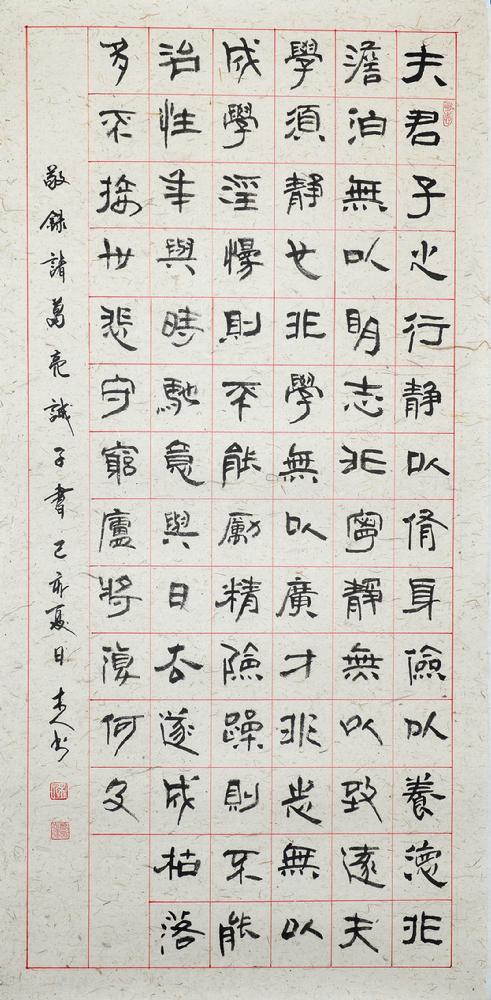 夫君子之行静以脩身儉以養德非
澹泊無以明志非寧靜無以致遠夫
學須靜也非學無以廣才非志無以
成學淫慢則不能勵精險躁則不能
治性年與時馳意與日去遂成枯落
多不接世悲守窮廬將復何及
敬錄諸葛亮誡子書己亥夏日书